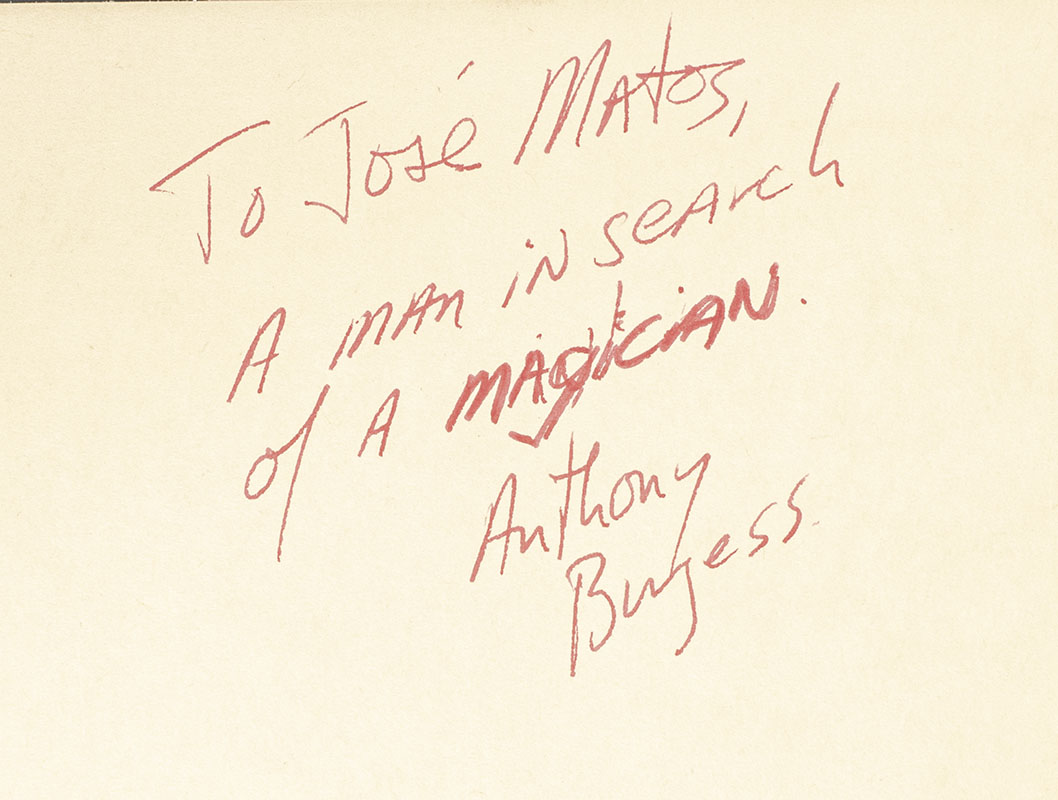 To José Matos,
A man in search
of A magician.
Anthony
Burgess.